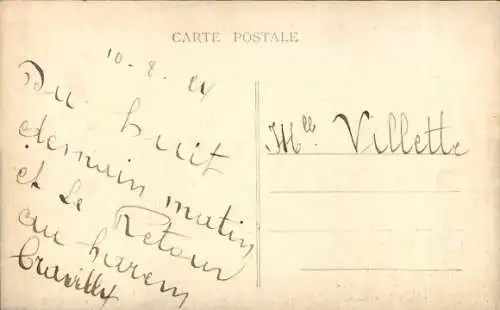 CARTE POSTALE
10-8-24
Du huit
demain matin
et le Retour
au harem
Mlle Villette